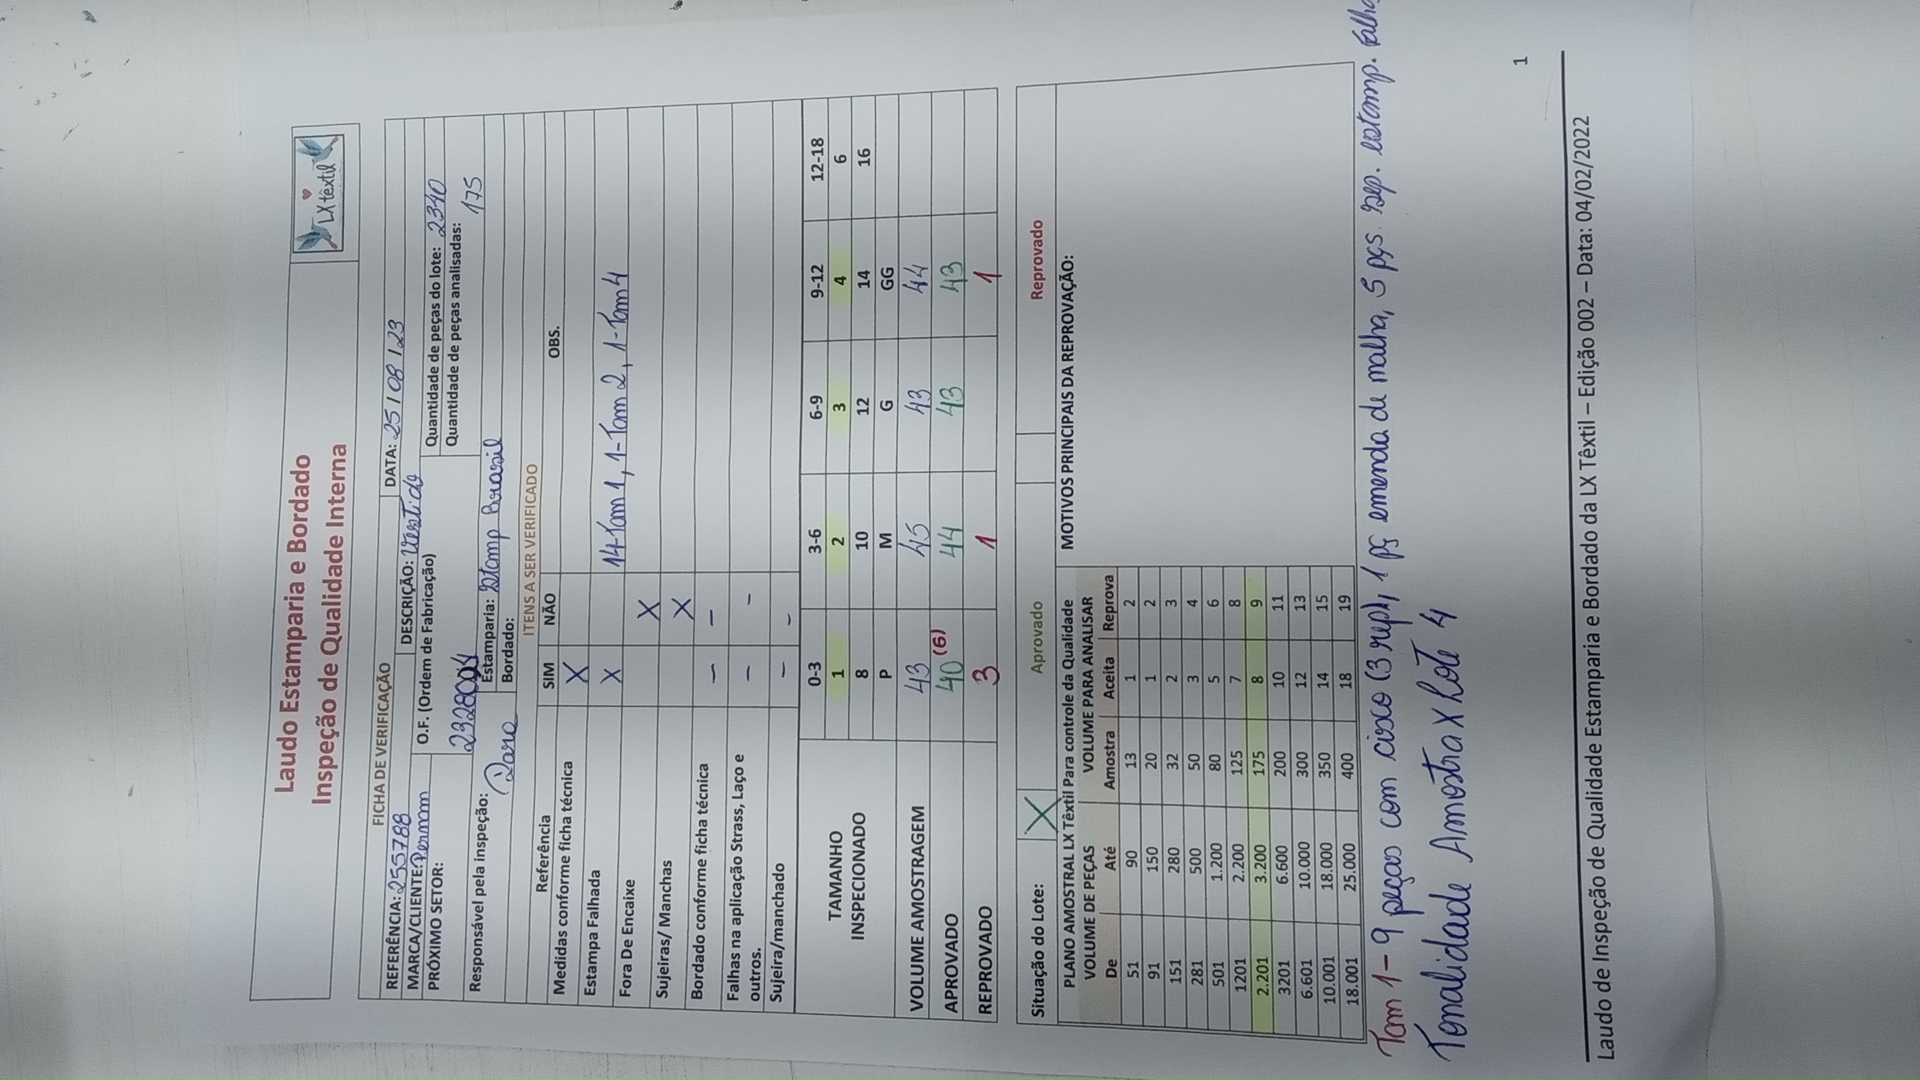 Laudo Estamparia e Bordado
Inspeção de Qualidade Interna
LX têxtil
FICHA DE VERIFICAÇÃO
REFERÊNCIA: 255788 DATA: 25/08/23
MARCA/CLIENTE: Pernam DESCRIÇÃO: Vestido
PRÓXIMO SETOR: O.F. (Ordem de Fabricação) Quantidade de peças do lote: 2340
Quantidade de peças analisadas: 175
Responsável pela inspeção: Estamparia: Stamp Brasil
Bordado:
ITENS A SER VERIFICADO
Referência SIM NÃO OBS.
Medidas conforme ficha técnica X
Estampa Falhada X 14-Tam 1, 1-Tam 2, 1-Tam 4
Fora De Encaixe X
Sujeiras/ Manchas X
Bordado conforme ficha técnica – –
Falhas na aplicação Strass, Laço e outros. – –
Sujeira/manchado – –
TAMANHO INSPECIONADO 0-3 3-6 6-9 9-12 12-18
1 2 3 4 6
8 10 12 14 16
P M G GG
VOLUME AMOSTRAGEM 43 45 43 44
APROVADO 40 (6) 44 43 43
REPROVADO 3 1 1
Situação do Lote: X Aprovado Reprovado
PLANO AMOSTRAL LX Têxtil Para controle da Qualidade MOTIVOS PRINCIPAIS DA REPROVAÇÃO:
VOLUME DE PEÇAS VOLUME PARA ANALISAR
De Até Amostra Aceita Reprova
51 90 13 1 2
91 150 20 1 2
151 280 32 2 3
281 500 50 3 4
501 1.200 80 5 6
1201 2.200 125 7 8
2.201 3.200 175 8 9
3201 6.600 200 10 11
6.601 10.000 300 12 13
10.001 18.000 350 14 15
18.001 25.000 400 18 19
Tam 1 - 9 peças com cisco (3 rep), 1 pç emenda de malha, 5 pçs. rep. estamp. falha
Tonalidade Amostra X Lote 4
1
Laudo de Inspeção de Qualidade Estamparia e Bordado da LX Têxtil – Edição 002 – Data: 04/02/2022